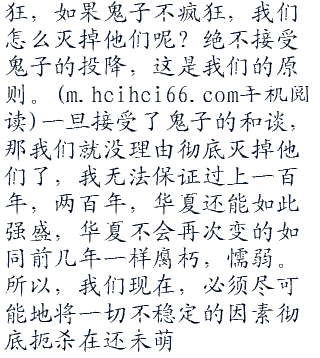 狂，如果鬼子不疯狂，我们
怎么灭掉他们呢？绝不接受
鬼子的投降，这是我们的原
则。(m.hcihci66.com手机阅
读)一旦接受了鬼子的和谈，
那我们就没理由彻底灭掉他
们了，我无法保证过上一百
年，两百年，华夏还能如此
强盛，华夏不会再次变的如
同前几年一样腐朽，懦弱。
所以，我们现在，必须尽可
能地将一切不稳定的因素彻
底扼杀在还未萌